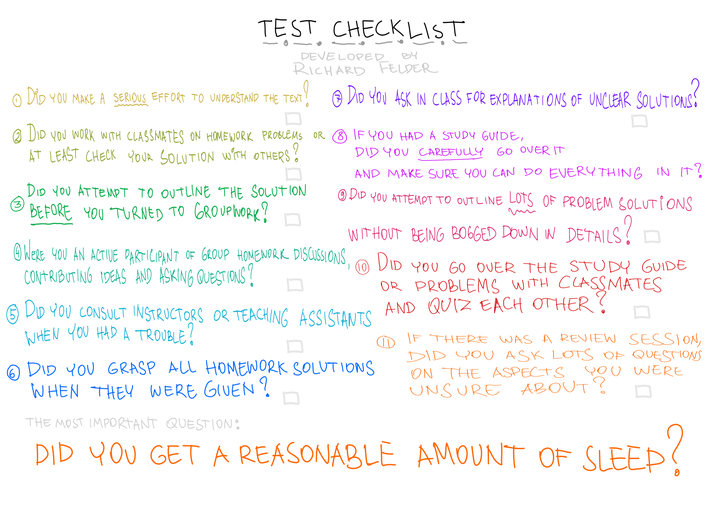 TEST CHECKLIST
DEVELOPED BY
RICHARD FELDER
① DID YOU MAKE A SERIOUS EFFORT TO UNDERSTAND THE TEXT?
② DID YOU WORK WITH CLASSMATES ON HOMEWORK PROBLEMS OR
AT LEAST CHECK YOUR SOLUTION WITH OTHERS?
③ DID YOU ATTEMPT TO OUTLINE THE SOLUTION
BEFORE YOU TURNED TO GROUPWORK?
④ WERE YOU AN ACTIVE PARTICIPANT OF GROUP HOMEWORK DISCUSSIONS,
CONTRIBUTING IDEAS AND ASKING QUESTIONS?
⑤ DID YOU CONSULT INSTRUCTORS OR TEACHING ASSISTANTS
WHEN YOU HAD A TROUBLE?
⑥ DID YOU GRASP ALL HOMEWORK SOLUTIONS
WHEN THEY WERE GIVEN?
⑦ DID YOU ASK IN CLASS FOR EXPLANATIONS OF UNCLEAR SOLUTIONS?
⑧ IF YOU HAD A STUDY GUIDE,
DID YOU CAREFULLY GO OVER IT
AND MAKE SURE YOU CAN DO EVERYTHING IN IT?
⑨ DID YOU ATTEMPT TO OUTLINE LOTS OF PROBLEM SOLUTIONS
WITHOUT BEING BOGGED DOWN IN DETAILS?
⑩ DID YOU GO OVER THE STUDY GUIDE
OR PROBLEMS WITH CLASSMATES
AND QUIZ EACH OTHER?
⑪ IF THERE WAS A REVIEW SESSION,
DID YOU ASK LOTS OF QUESTIONS
ON THE ASPECTS YOU WERE
UNSURE ABOUT?
THE MOST IMPORTANT QUESTION:
DID YOU GET A REASONABLE AMOUNT OF SLEEP?